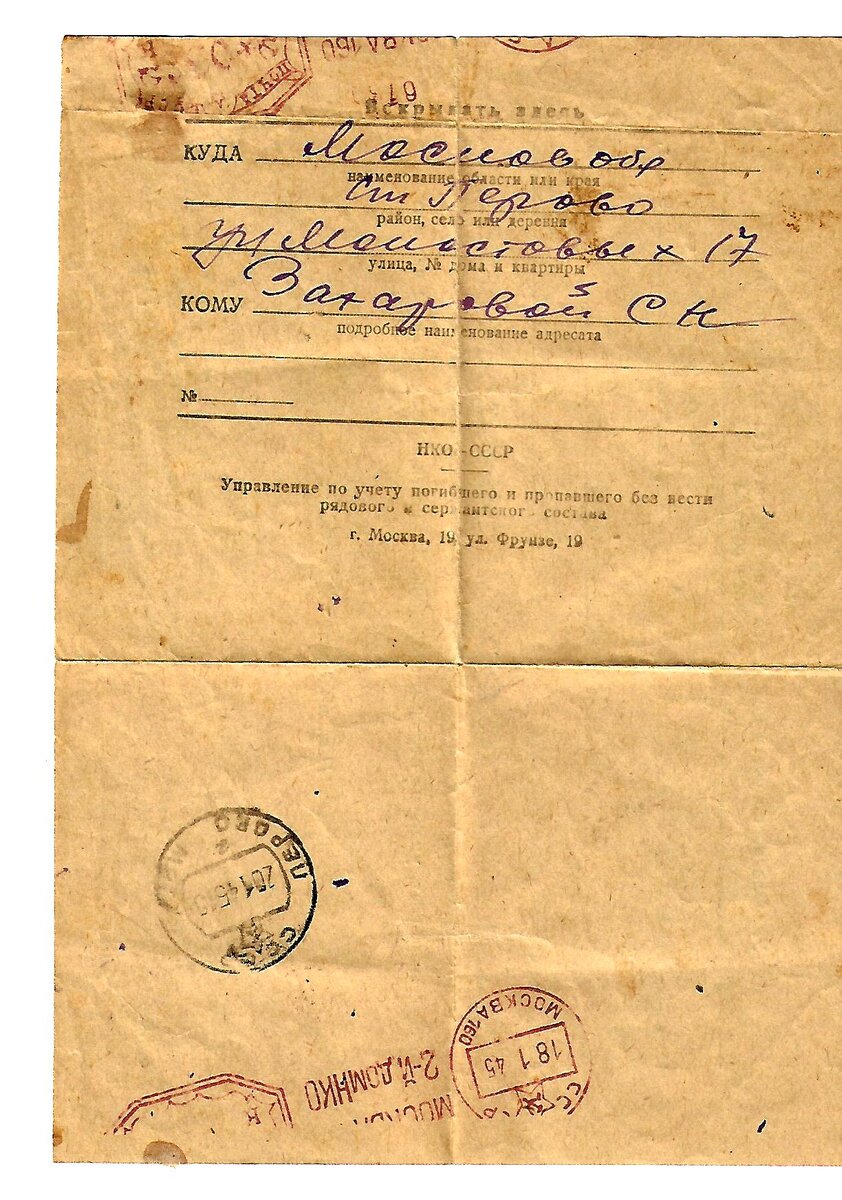 МОСКВА 160
Вскрывать здесь
КУДА Москов обл
наименование области или края
ст Перово
район, село или деревня
ул 17
улица, № дома и квартиры
КОМУ Захаровой С Н
подробное наименование адресата
№
НКО-СССР
Управление по учету погибшего и пропавшего без вести
рядового и сержантского состава
г. Москва, 19, ул. Фрунзе, 19
ПЕРОВО
20 1 45
СССР
МОСКВА 160
18 1 45
СССР
2-Й ДОМ НКО